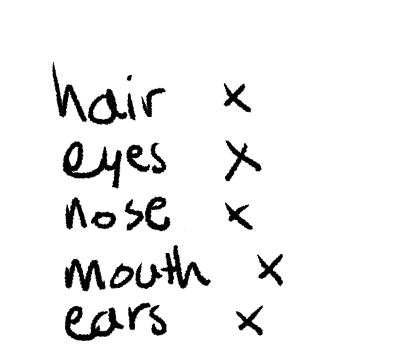 hair x
eyes x
nose x
mouth x
ears x